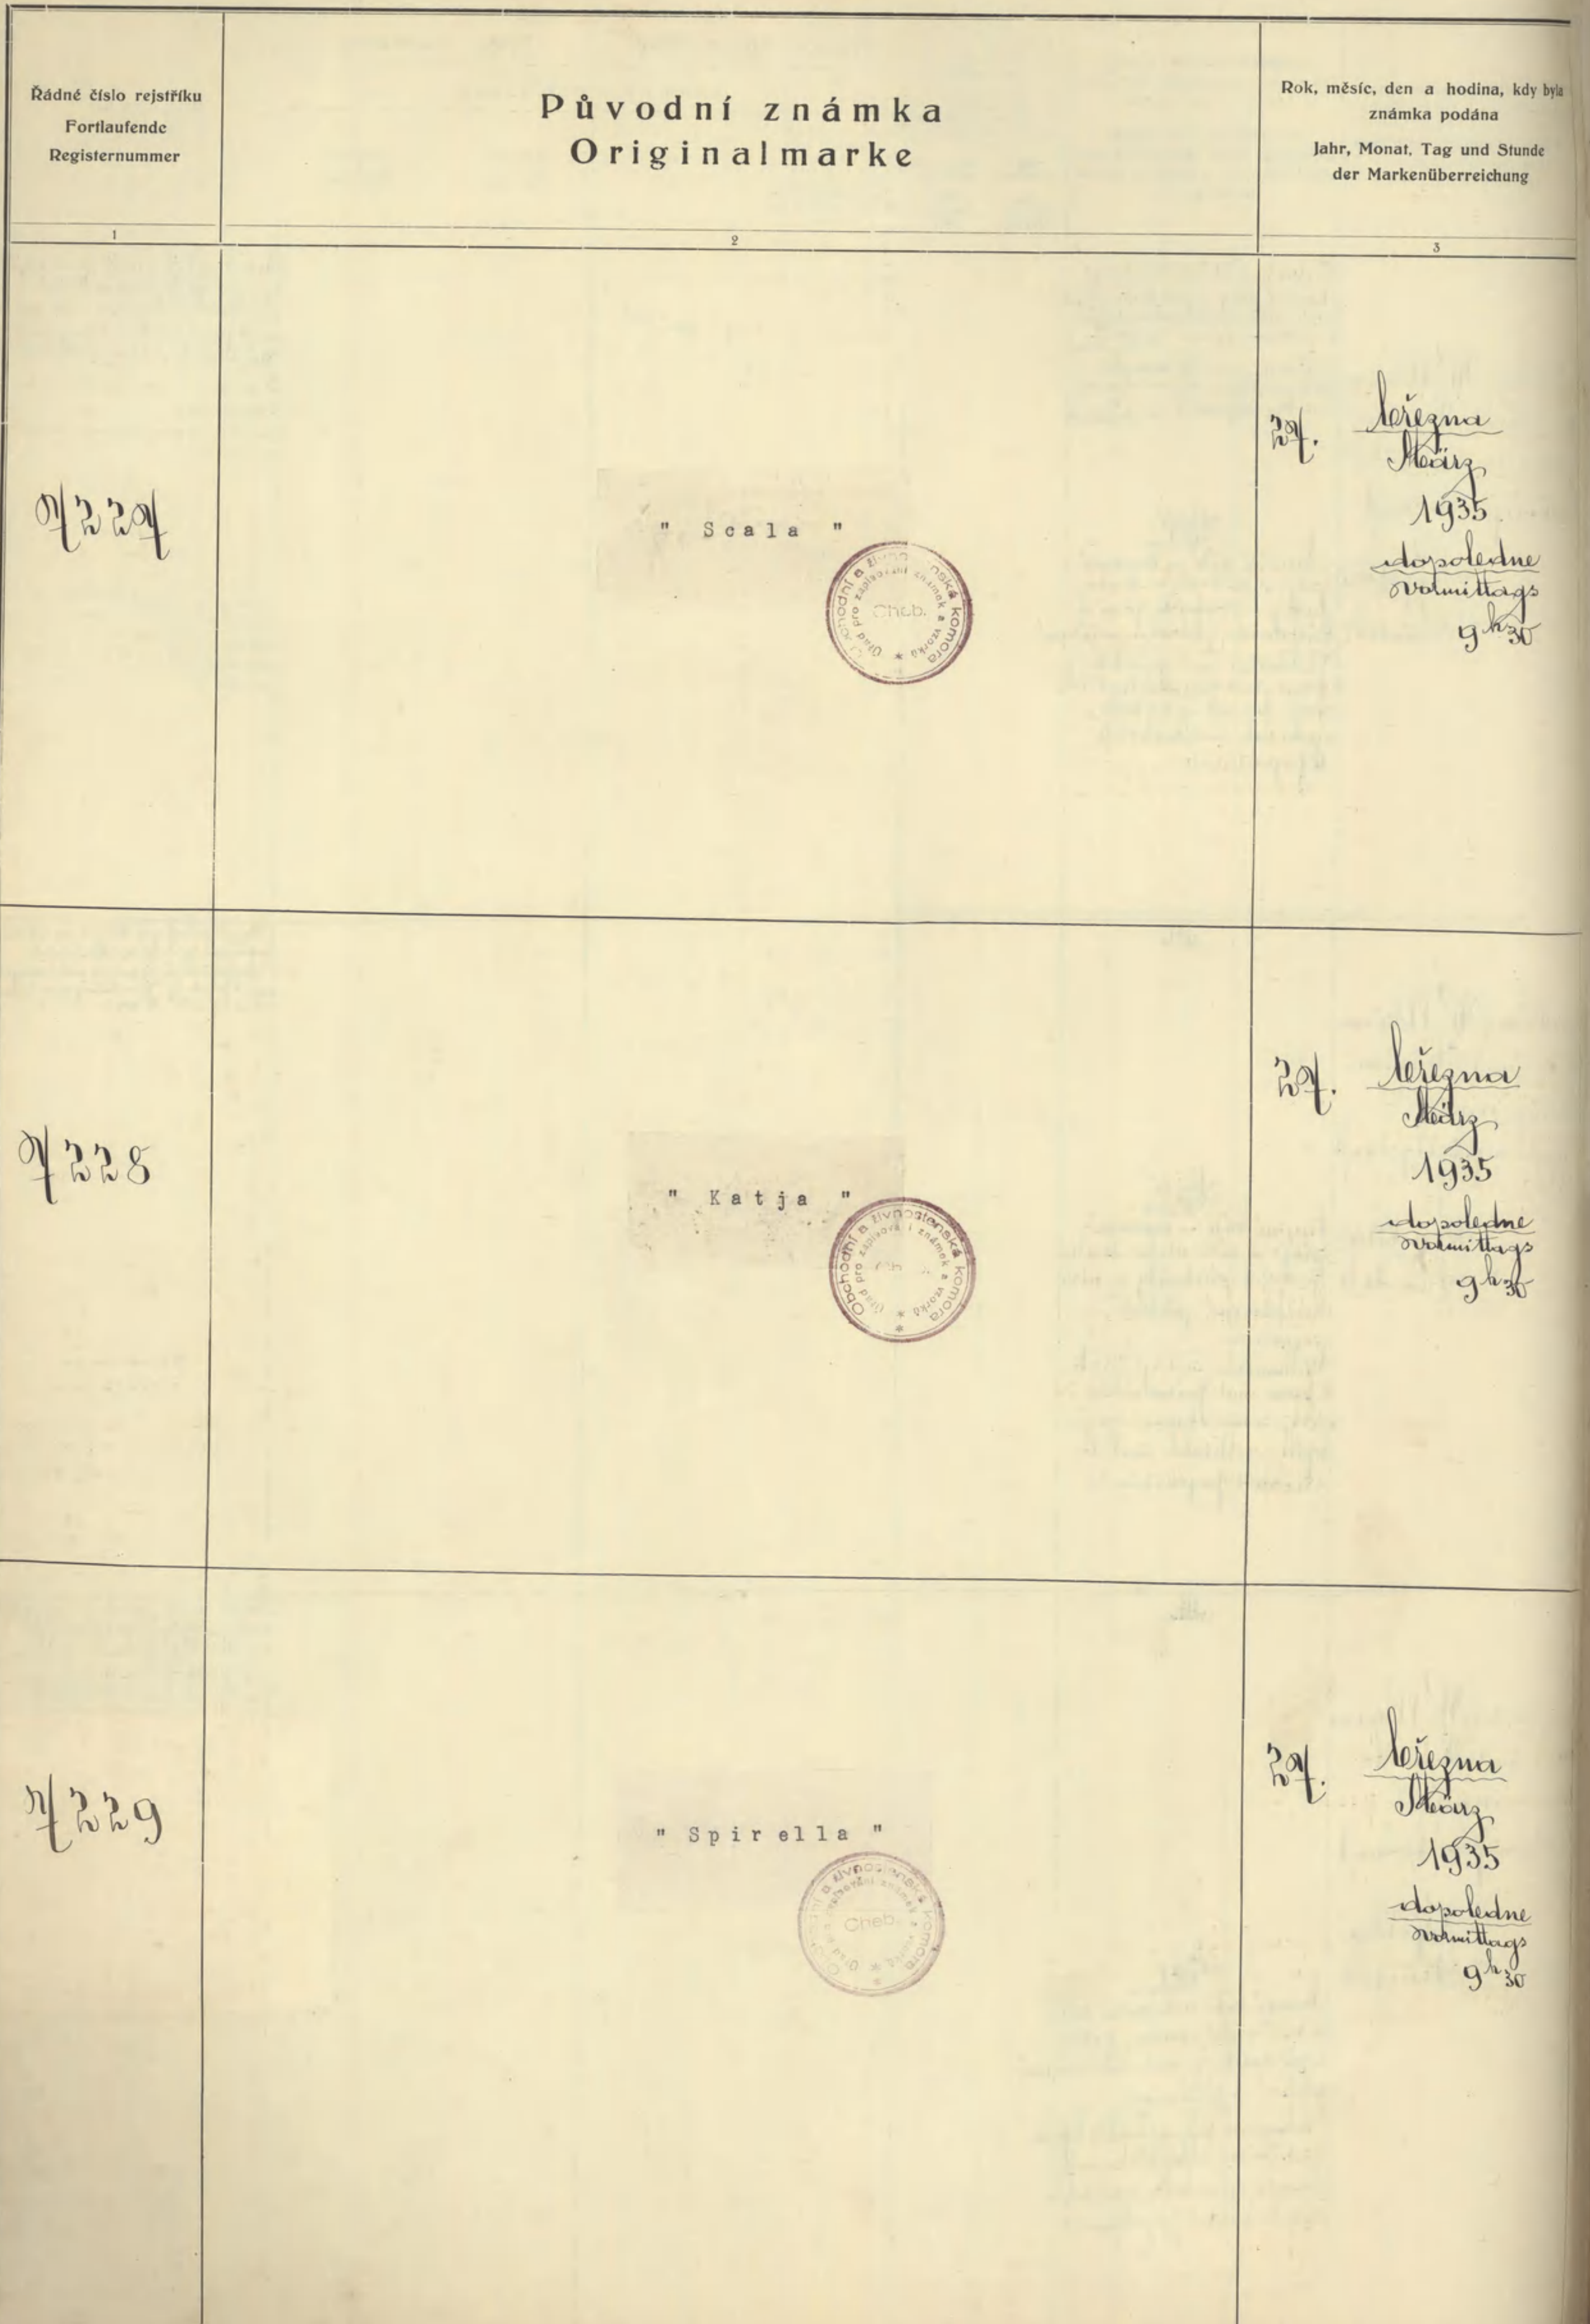 Řádné číslo rejstříku
Fortlaufende
Registernummer
Původní známka
Originalmarke
Rok, měsíc, den a hodina, kdy byla
známka podána
Jahr, Monat, Tag und Stunde
der Markenüberreichung
1
2
3
7227
" Scala "
Obchodní a živnostenská komora
Úřad pro zapisování známek a vzorků
Cheb.
27. března
März
1935
dopoledne
Vormittags
9h30
7228
" Katja "
Obchodní a živnostenská komora
Úřad pro zapisování známek a vzorků
27. března
März
1935
dopoledne
Vormittags
9h30
7229
" Spirella "
Obchodní a živnostenská komora
Úřad pro zapisování známek a vzorků
Cheb.
27. března
März
1935
dopoledne
Vormittags
9h30